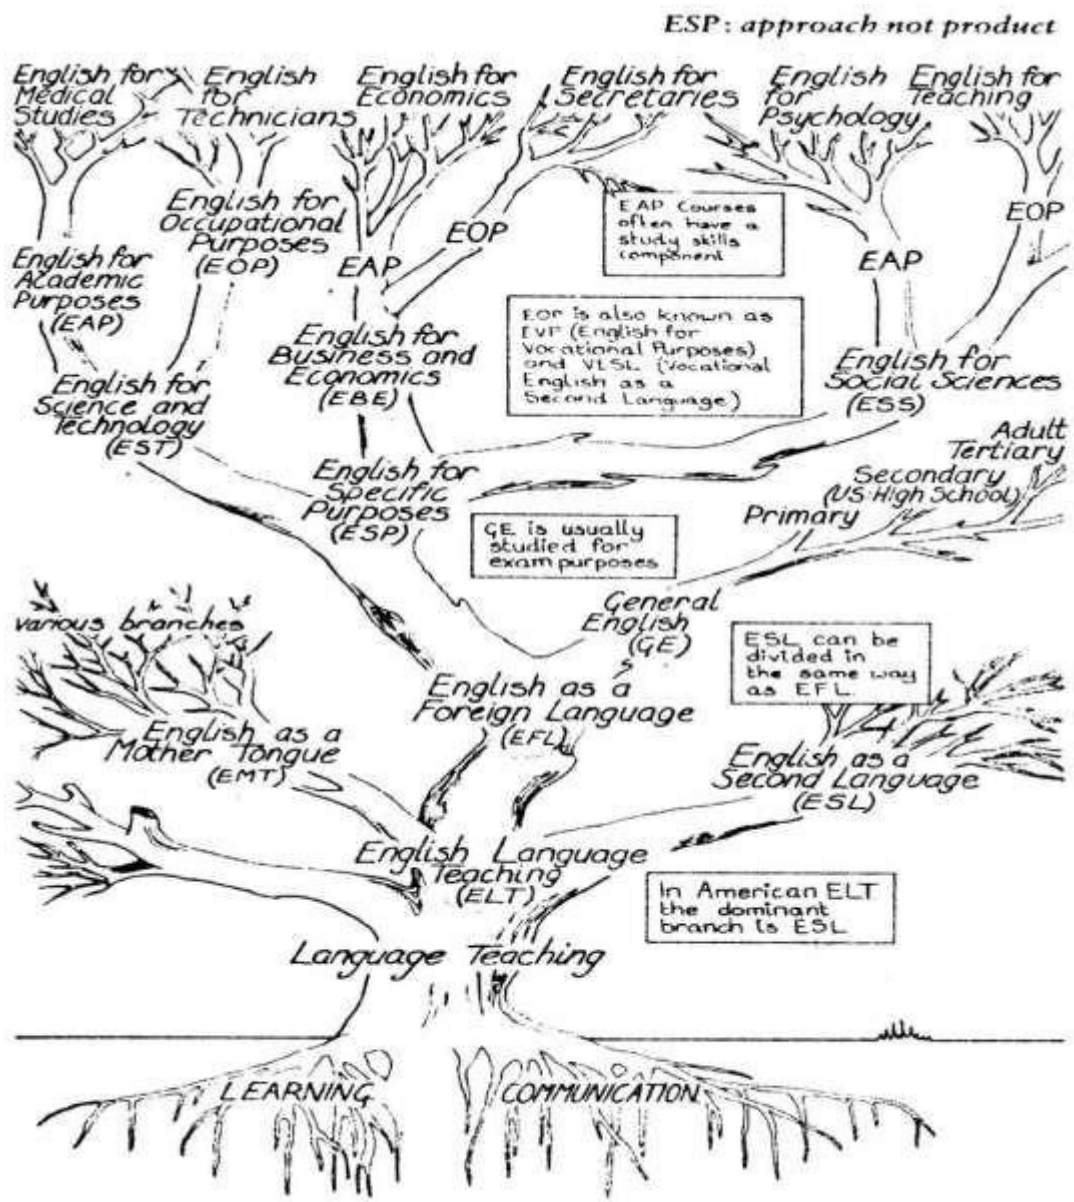 ESP: approach not product
English for
Medical
Studies
English
for
Technicians
English for
Economics
English for
Secretaries
English
for
Psychology
English for
Teaching
English for
Occupational
Purposes
(EOP)
English for
Academic
Purposes
(EAP)
EAP
EOP
EAP Courses
often have a
study skills
component
EAP
EOP
English for
Science and
Technology
(EST)
English for
Business and
Economics
(EBE)
EOP is also known as
EVP (English for
Vocational Purposes)
and VESL (Vocational
English as a
Second Language)
English for
Social Sciences
(ESS)
English for
Specific
Purposes
(ESP)
Adult
Tertiary
Secondary
(US:High School)
Primary
GE is usually
studied for
exam purposes
General
English
(GE)
various branches
ESL can be
divided in
the same way
as EFL.
English as a
Foreign Language
(EFL)
English as a
Mother Tongue
(EMT)
English as a
Second Language
(ESL)
English Language
Teaching
(ELT)
In American ELT
the dominant
branch is ESL
Language Teaching
LEARNING
COMMUNICATION